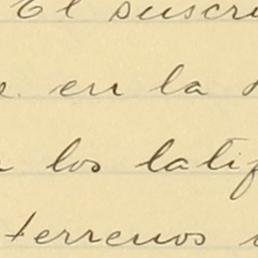 El suscri
en la
los latif
terrenos